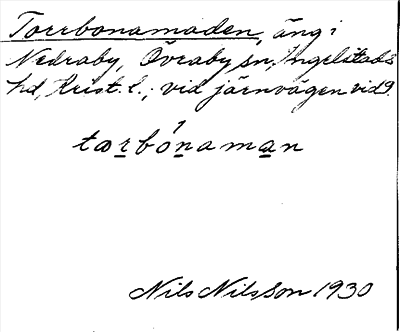 Torrbonamaden, äng i
Nedraby, Övraby sn, Ingelstads
hd, Krist. l.; vid järnvägen vid 9.
tɑrbónaman
Nils Nilsson 1930